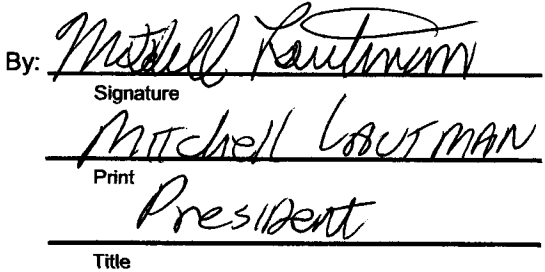 By: Mitchell Lautman
Signature
Mitchell Lautman
Print
President
Title